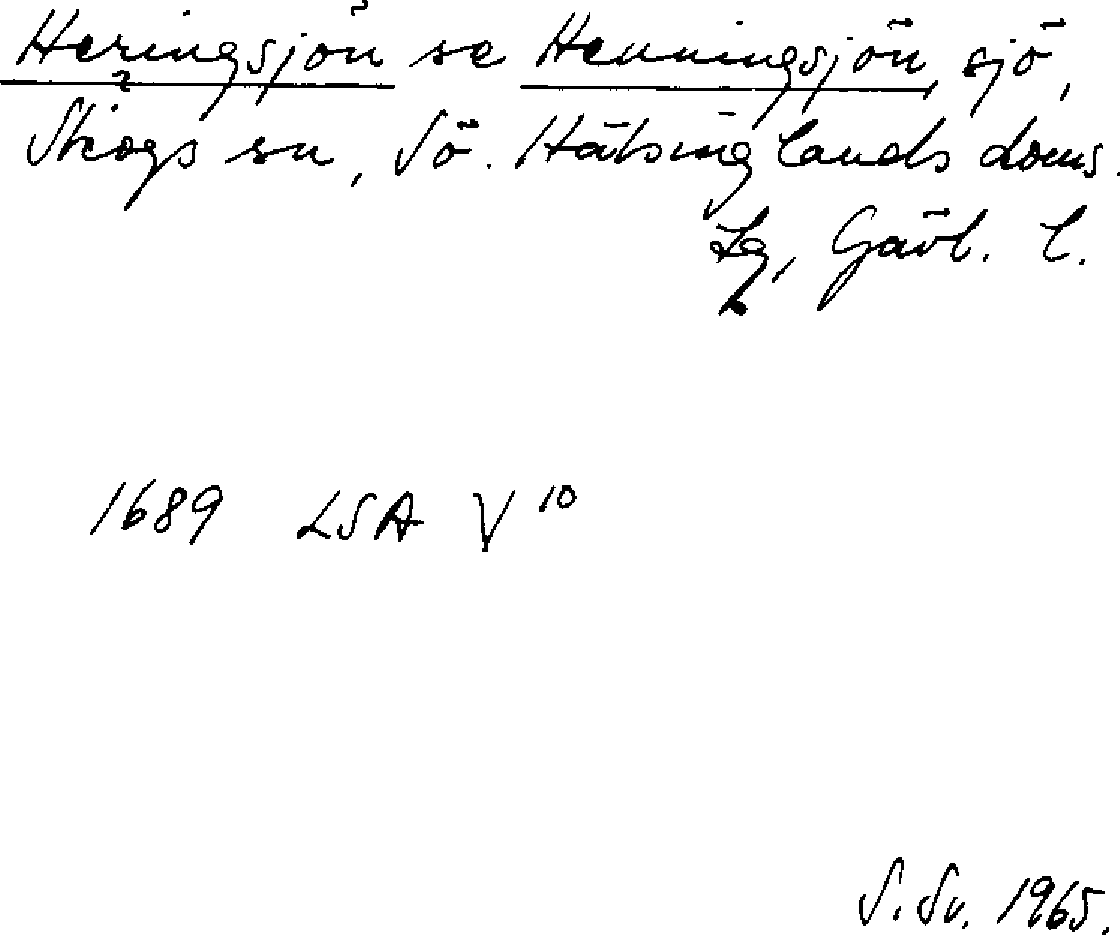 Heringsjön se Henningsjön, sjö,
Skogs sn, Sö. Hälsinglands doms.
Lg, Gävl. l.
1689 LSA V 10
S. Sv. 1965.